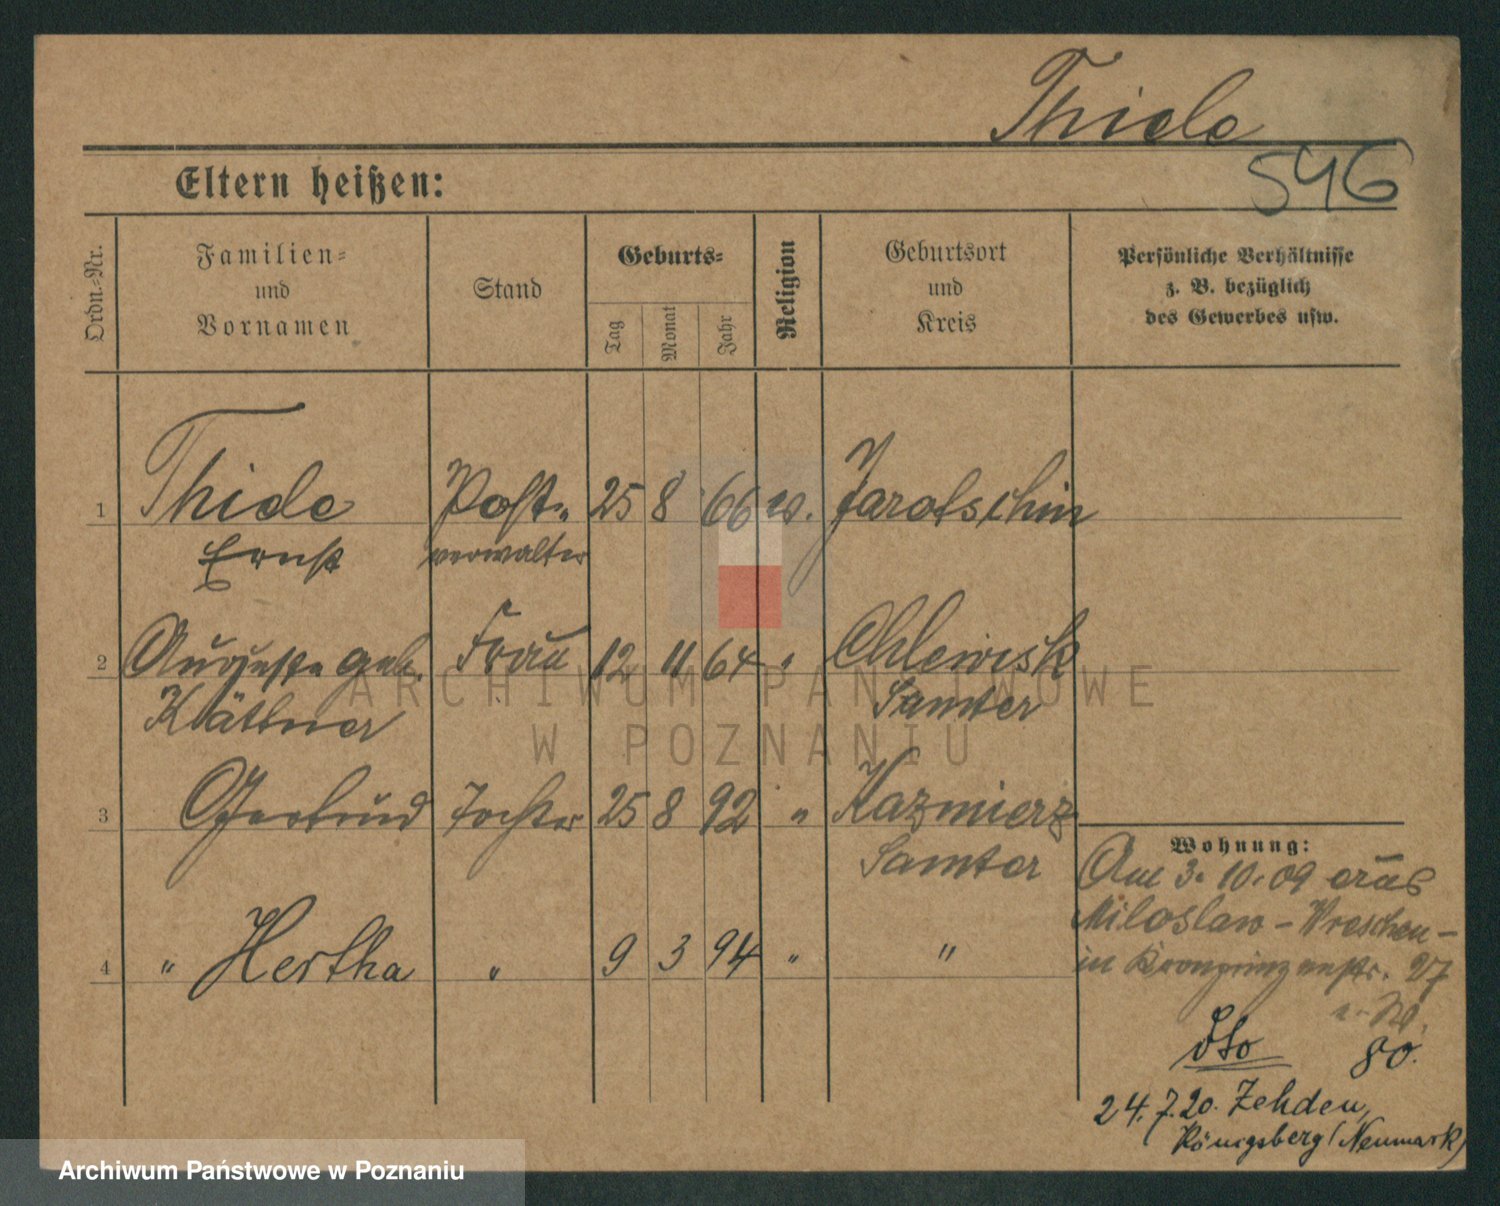 Thiele
546
Eltern heißen:
Ordn.-Nr.
Familien-
und
Vornamen
Stand
Geburts-
Tag
Monat
Jahr
Religion
Geburtsort
und
Kreis
Persönliche Verhältnisse
z. B. bezüglich
des Gewerbes usw.
1 Thiele Post- 25 8 66 ev. Jarotschin
Ernst verwalter
2 Auguste geb. Frau 12 11 64 " Chlewisk
Samter
3 Gertrud Tochter 25 8 92 " Kazmierz
Samter
4 " Hertha " 9 3 94 " "
Wohnung:
Am 3. 10. 09 aus
Miloslaw - Wreschen -
in Kronprinzenstr. 27
80.
24.7.20. Zehden,
Königsberg (Neumark)
ARCHIWUM PAŃSTWOWE
W POZNANIU
Archiwum Państwowe w Poznaniu